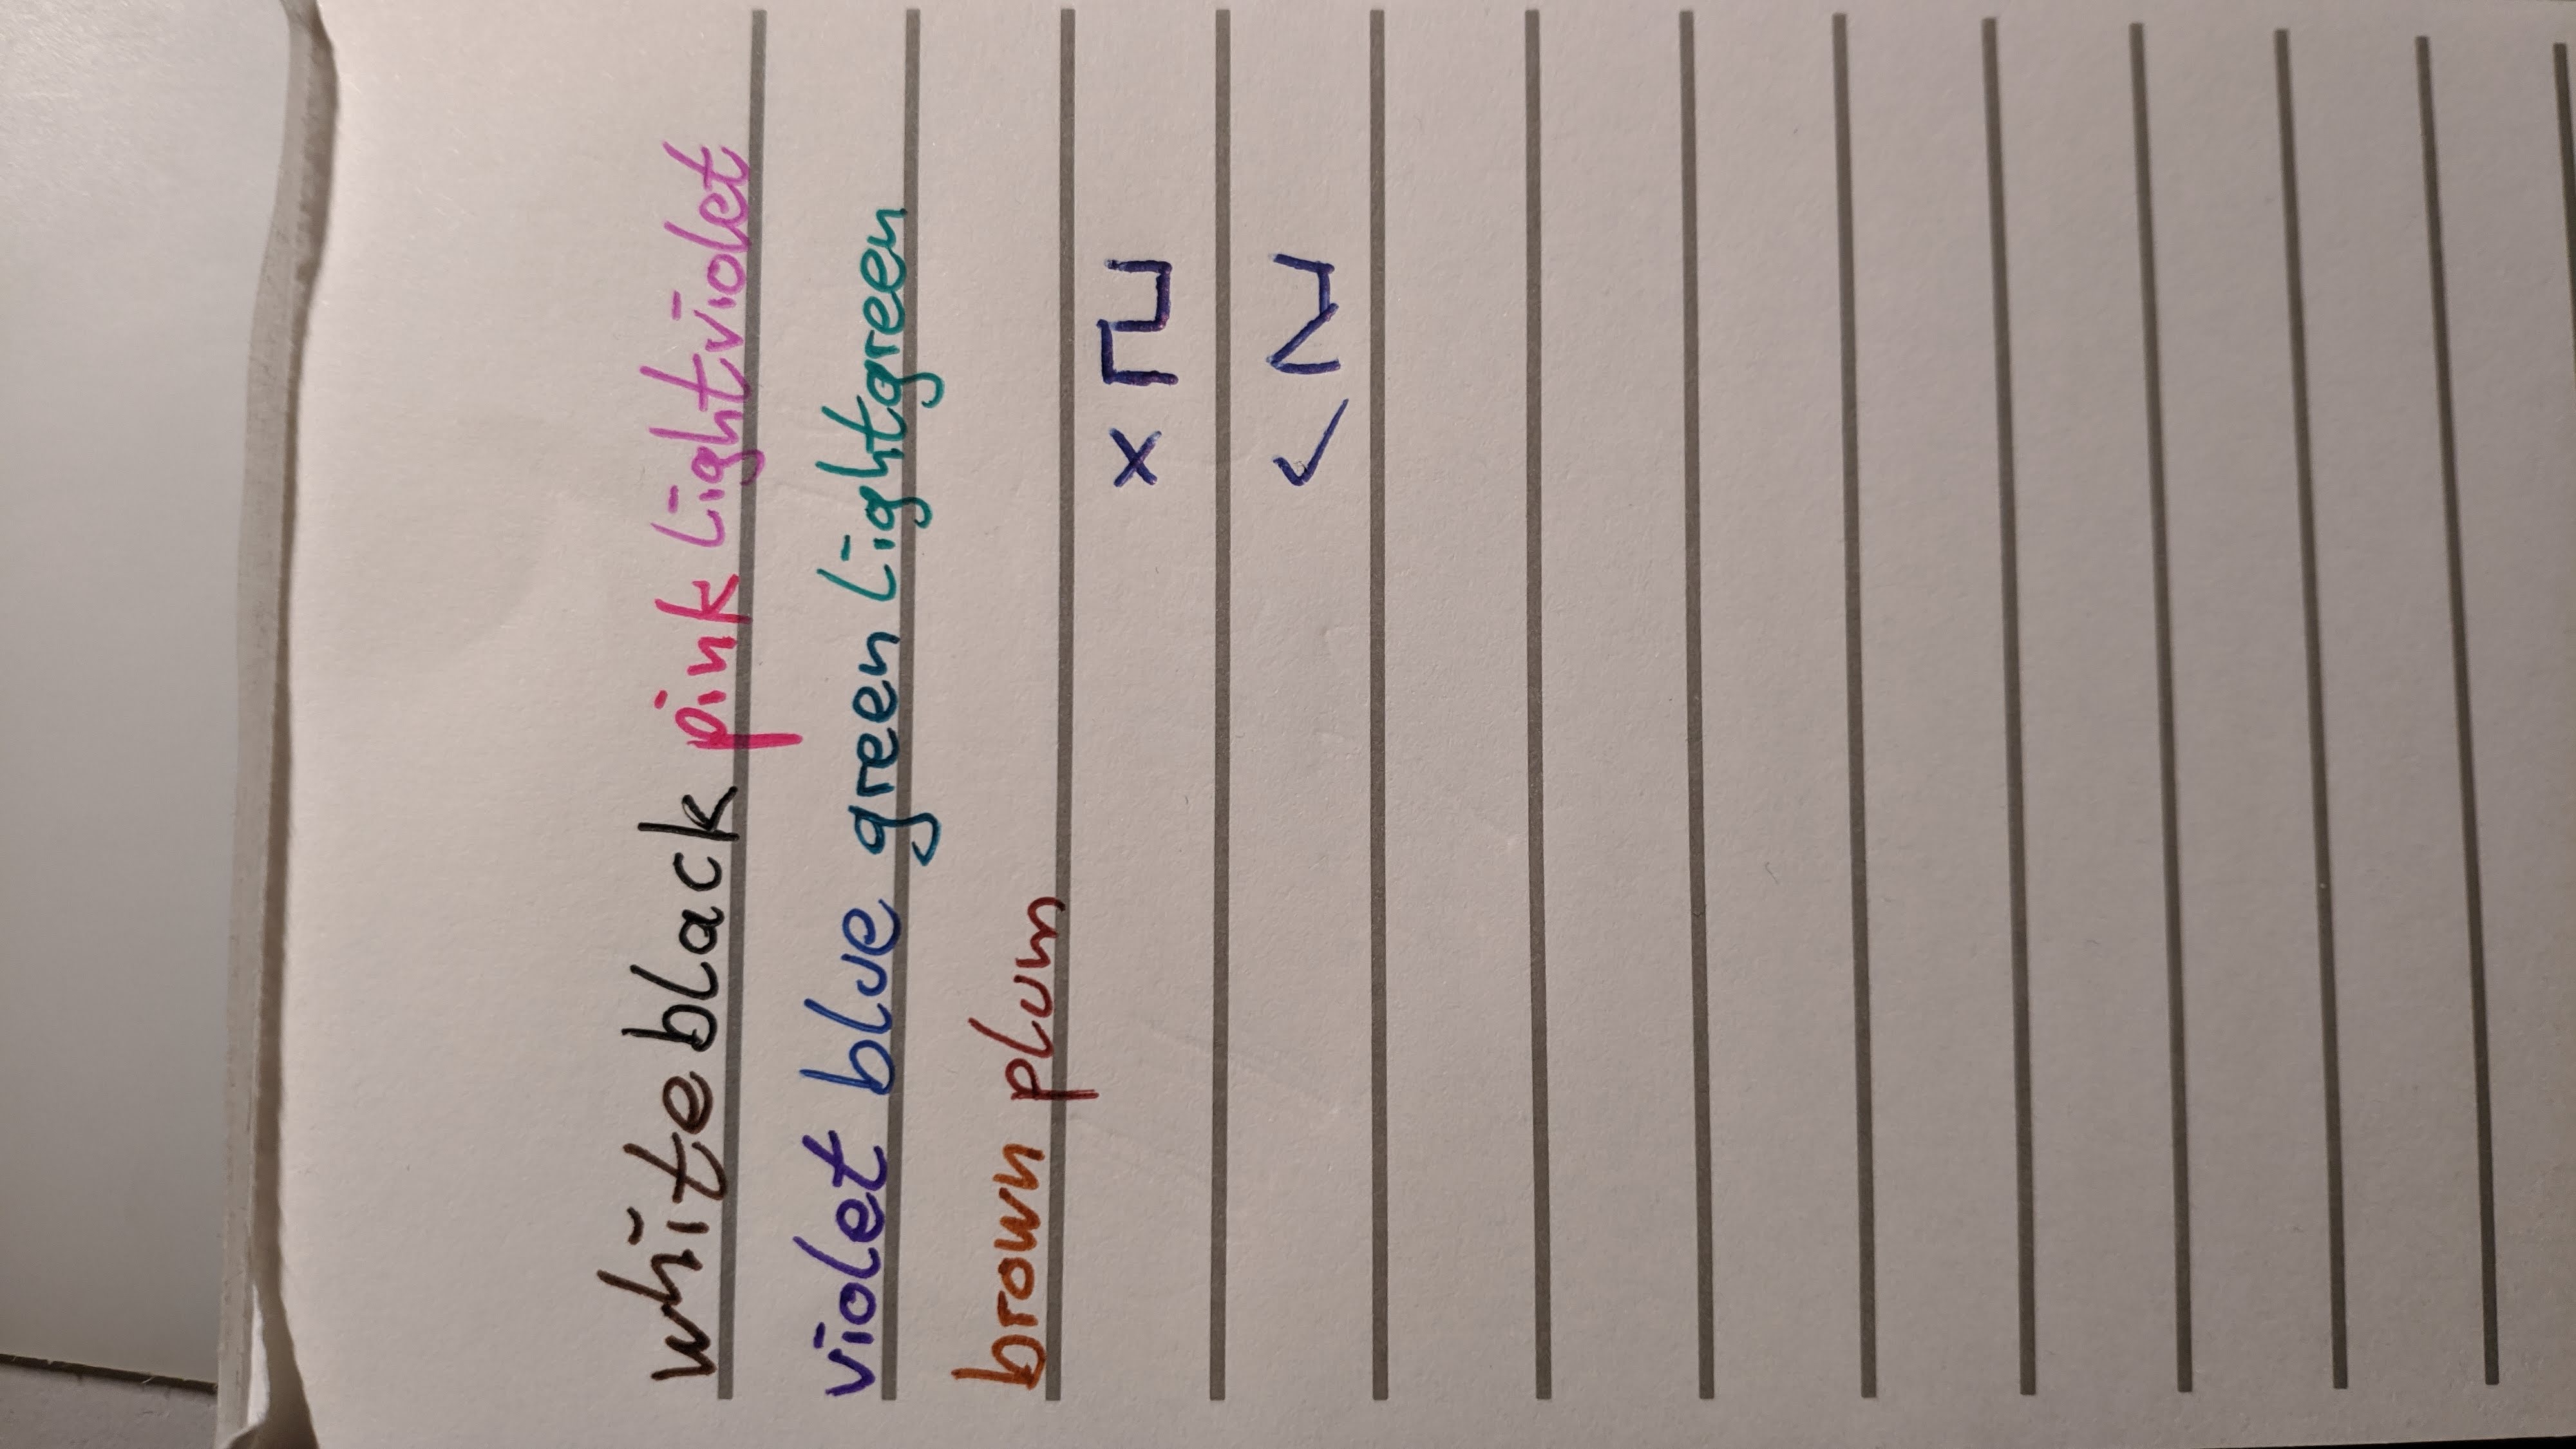 white black pink lightviolet
violet blue green lightgreen
brown plum